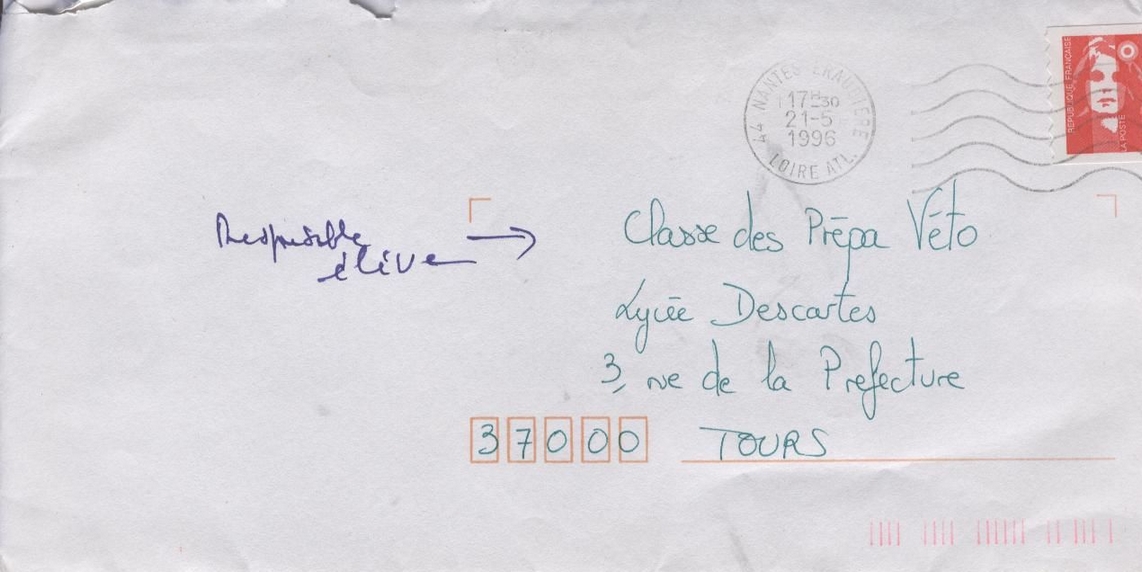 44 NANTES ERAUDIERE
17H30
21-5
1996
LOIRE ATL.
REPUBLIQUE FRANCAISE
LA POSTE
Responsable
élève
Classe des Prépa Véto
Lycée Descartes
3, rue de la Prefecture
37000 TOURS